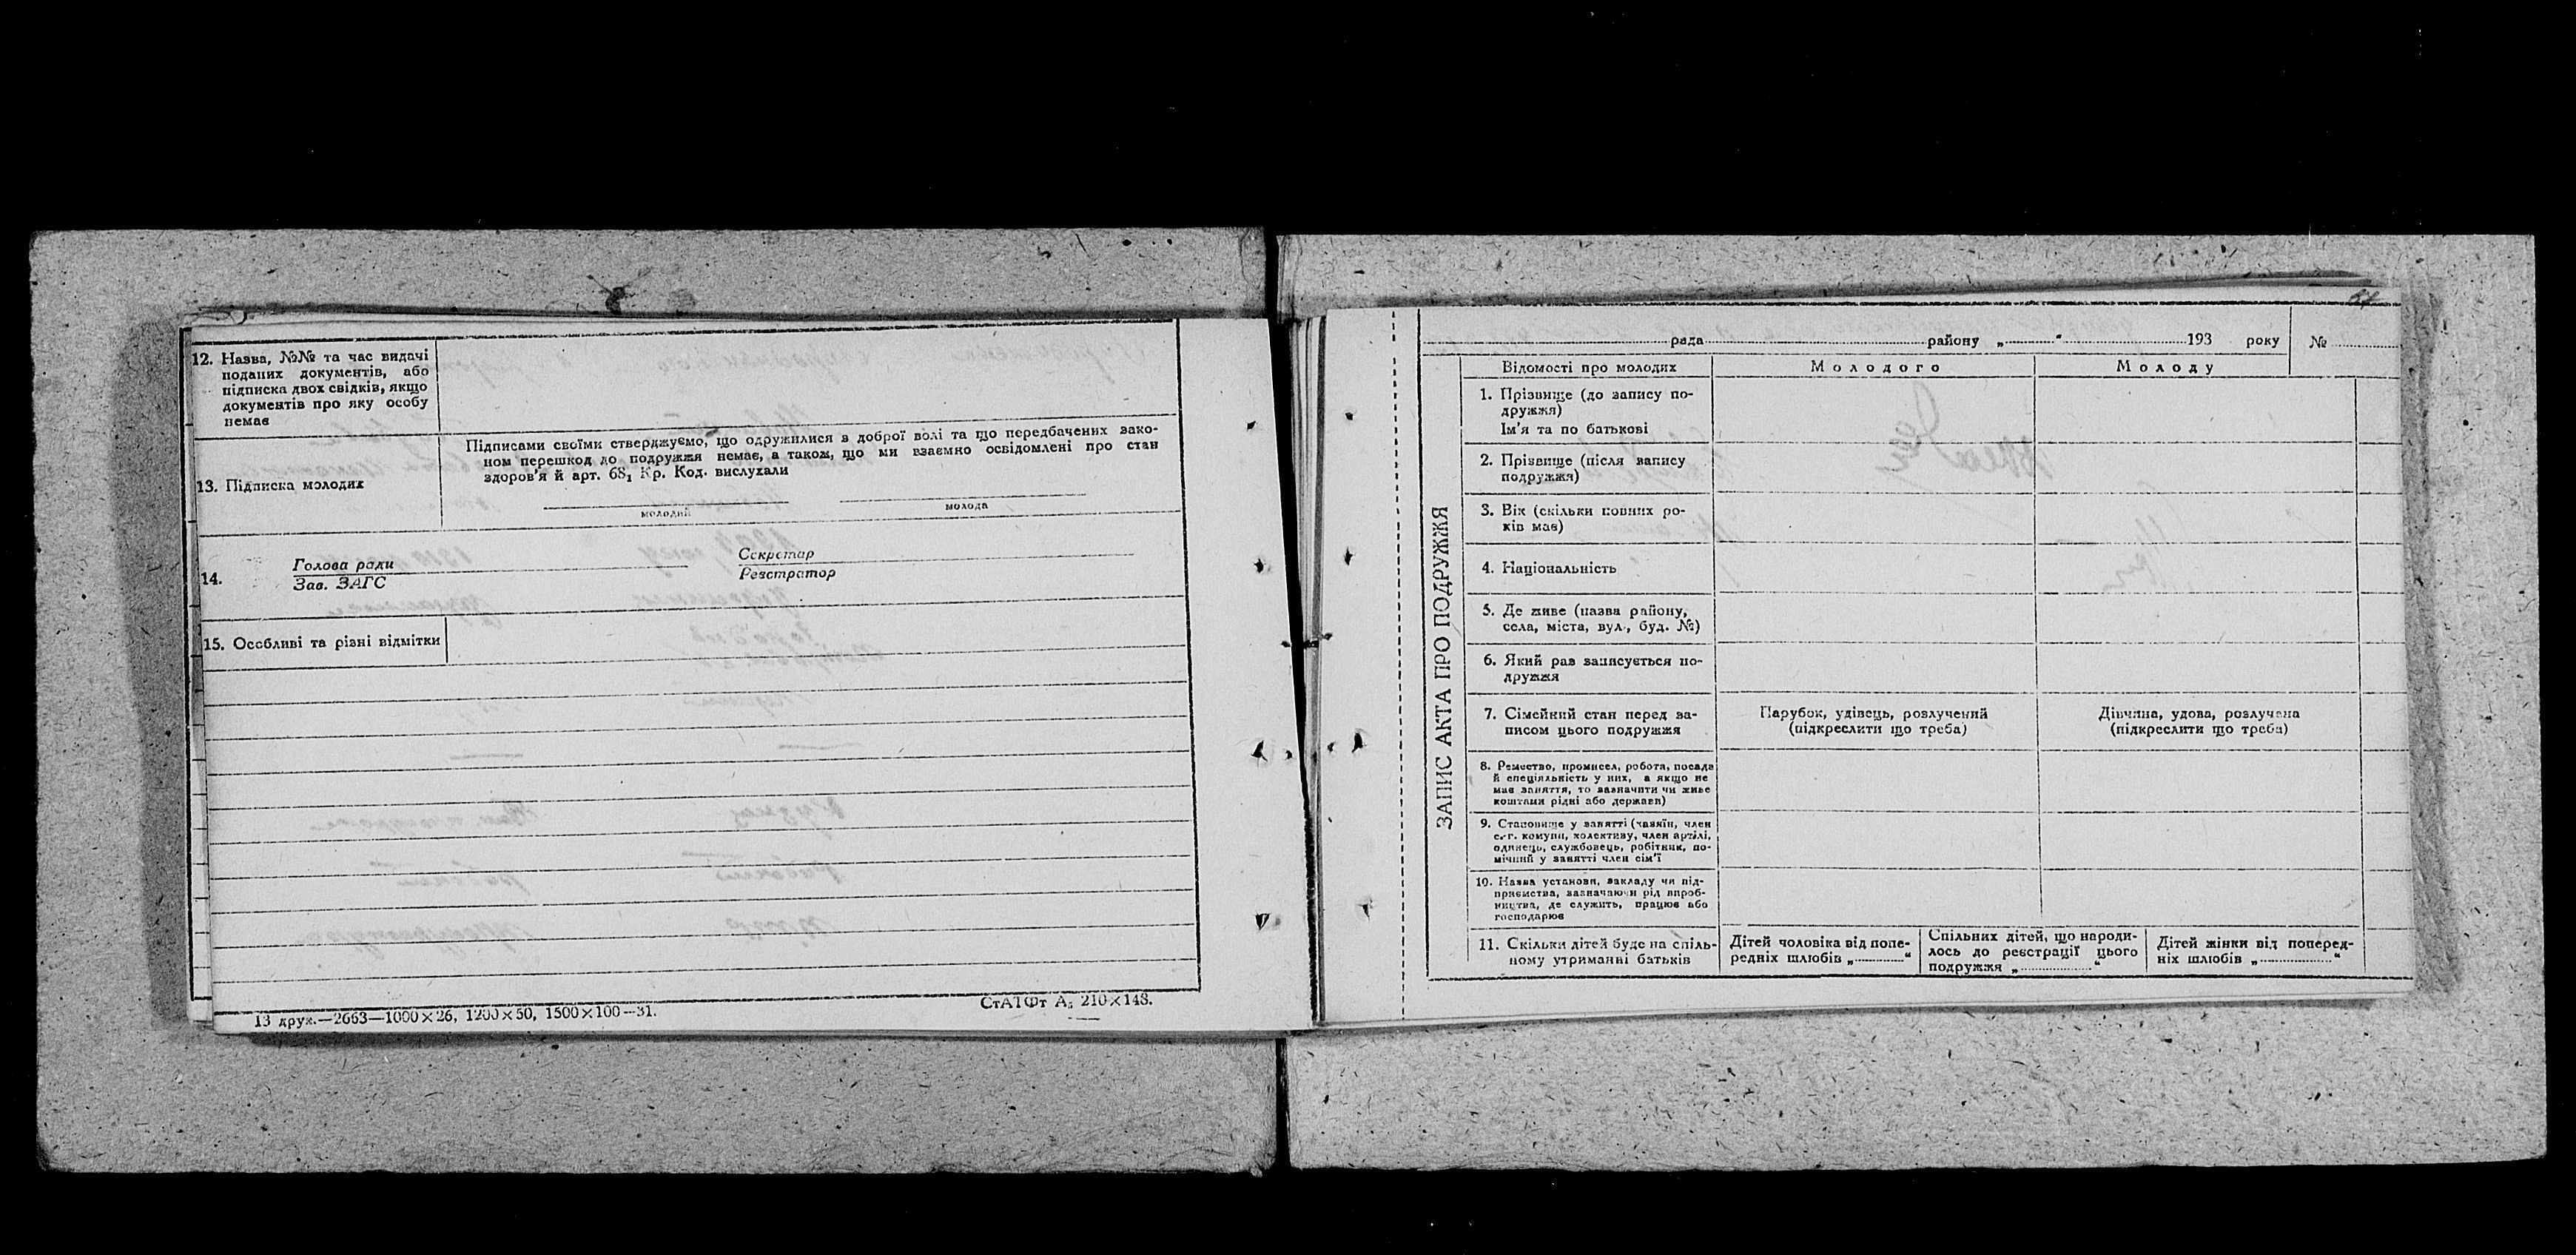 12. Назва, №№ та час видачі
поданих документів, або
підписка двох свідків, якщо
документів про яку особу
немає
13. Підписка молодих
Підписами своїми стверджуємо, що одружилися в доброї волі та що передбачених зако-
ном перешкод до подружжя немає, а також, що ми взаємно освідомлені про стан
здоров'я й арт. 68₁ Кр. Код. вислухали
молодий
молода
14.
Голова ради
Зав. ЗАГС
Секретар
Реєстратор
15. Особливі та різні відмітки
13 друк.—2663—1000×26, 1200×50, 1500×100—31.
СтАТФт А₅ 210×148.
ЗАПИС АКТА ПРО ПОДРУЖЖЯ
рада района „ “ 193 року №
Відомості про молодих
Молодого
Молоду
1. Прізвище (до запису по-
дружжя)
Ім'я та по батькові
2. Прізвище (після запису
подружжя)
3. Вік (скільки повних ро-
ків має)
4. Національність
5. Де живе (назва району,
села, міста, вул., буд. №)
6. Який раз записується по-
дружжя
7. Сімейний стан перед за-
писом цього подружжя
Парубок, удівець, розлучений
(підкреслити що треба)
Дівчина, удова, розлучена
(підкреслити що треба)
8. Ремество, промисел, робота, посада
й спеціяльність у них, а якщо не
має заняття, то зазначити чи живе
коштами рідні або держави)
9. Становище у занятті (хазяїн, член
с.-г. комуни, колективу, член артілі,
одинець, службовець, робітник, по-
мічний у занятті член сім'ї
10. Назва установи, закладу чи під-
приємства, зазначаючи рід вироб-
ництва, де служить, працює або
господарює
11. Скільки дітей буде на спіль-
ному утриманні батьків
Дітей чоловіка від попе-
редніх шлюбів „ “
Спільних дітей, що народи-
лось до реєстрації цього
подружжя „ “
Дітей жінки від поперед-
ніх шлюбів „ “